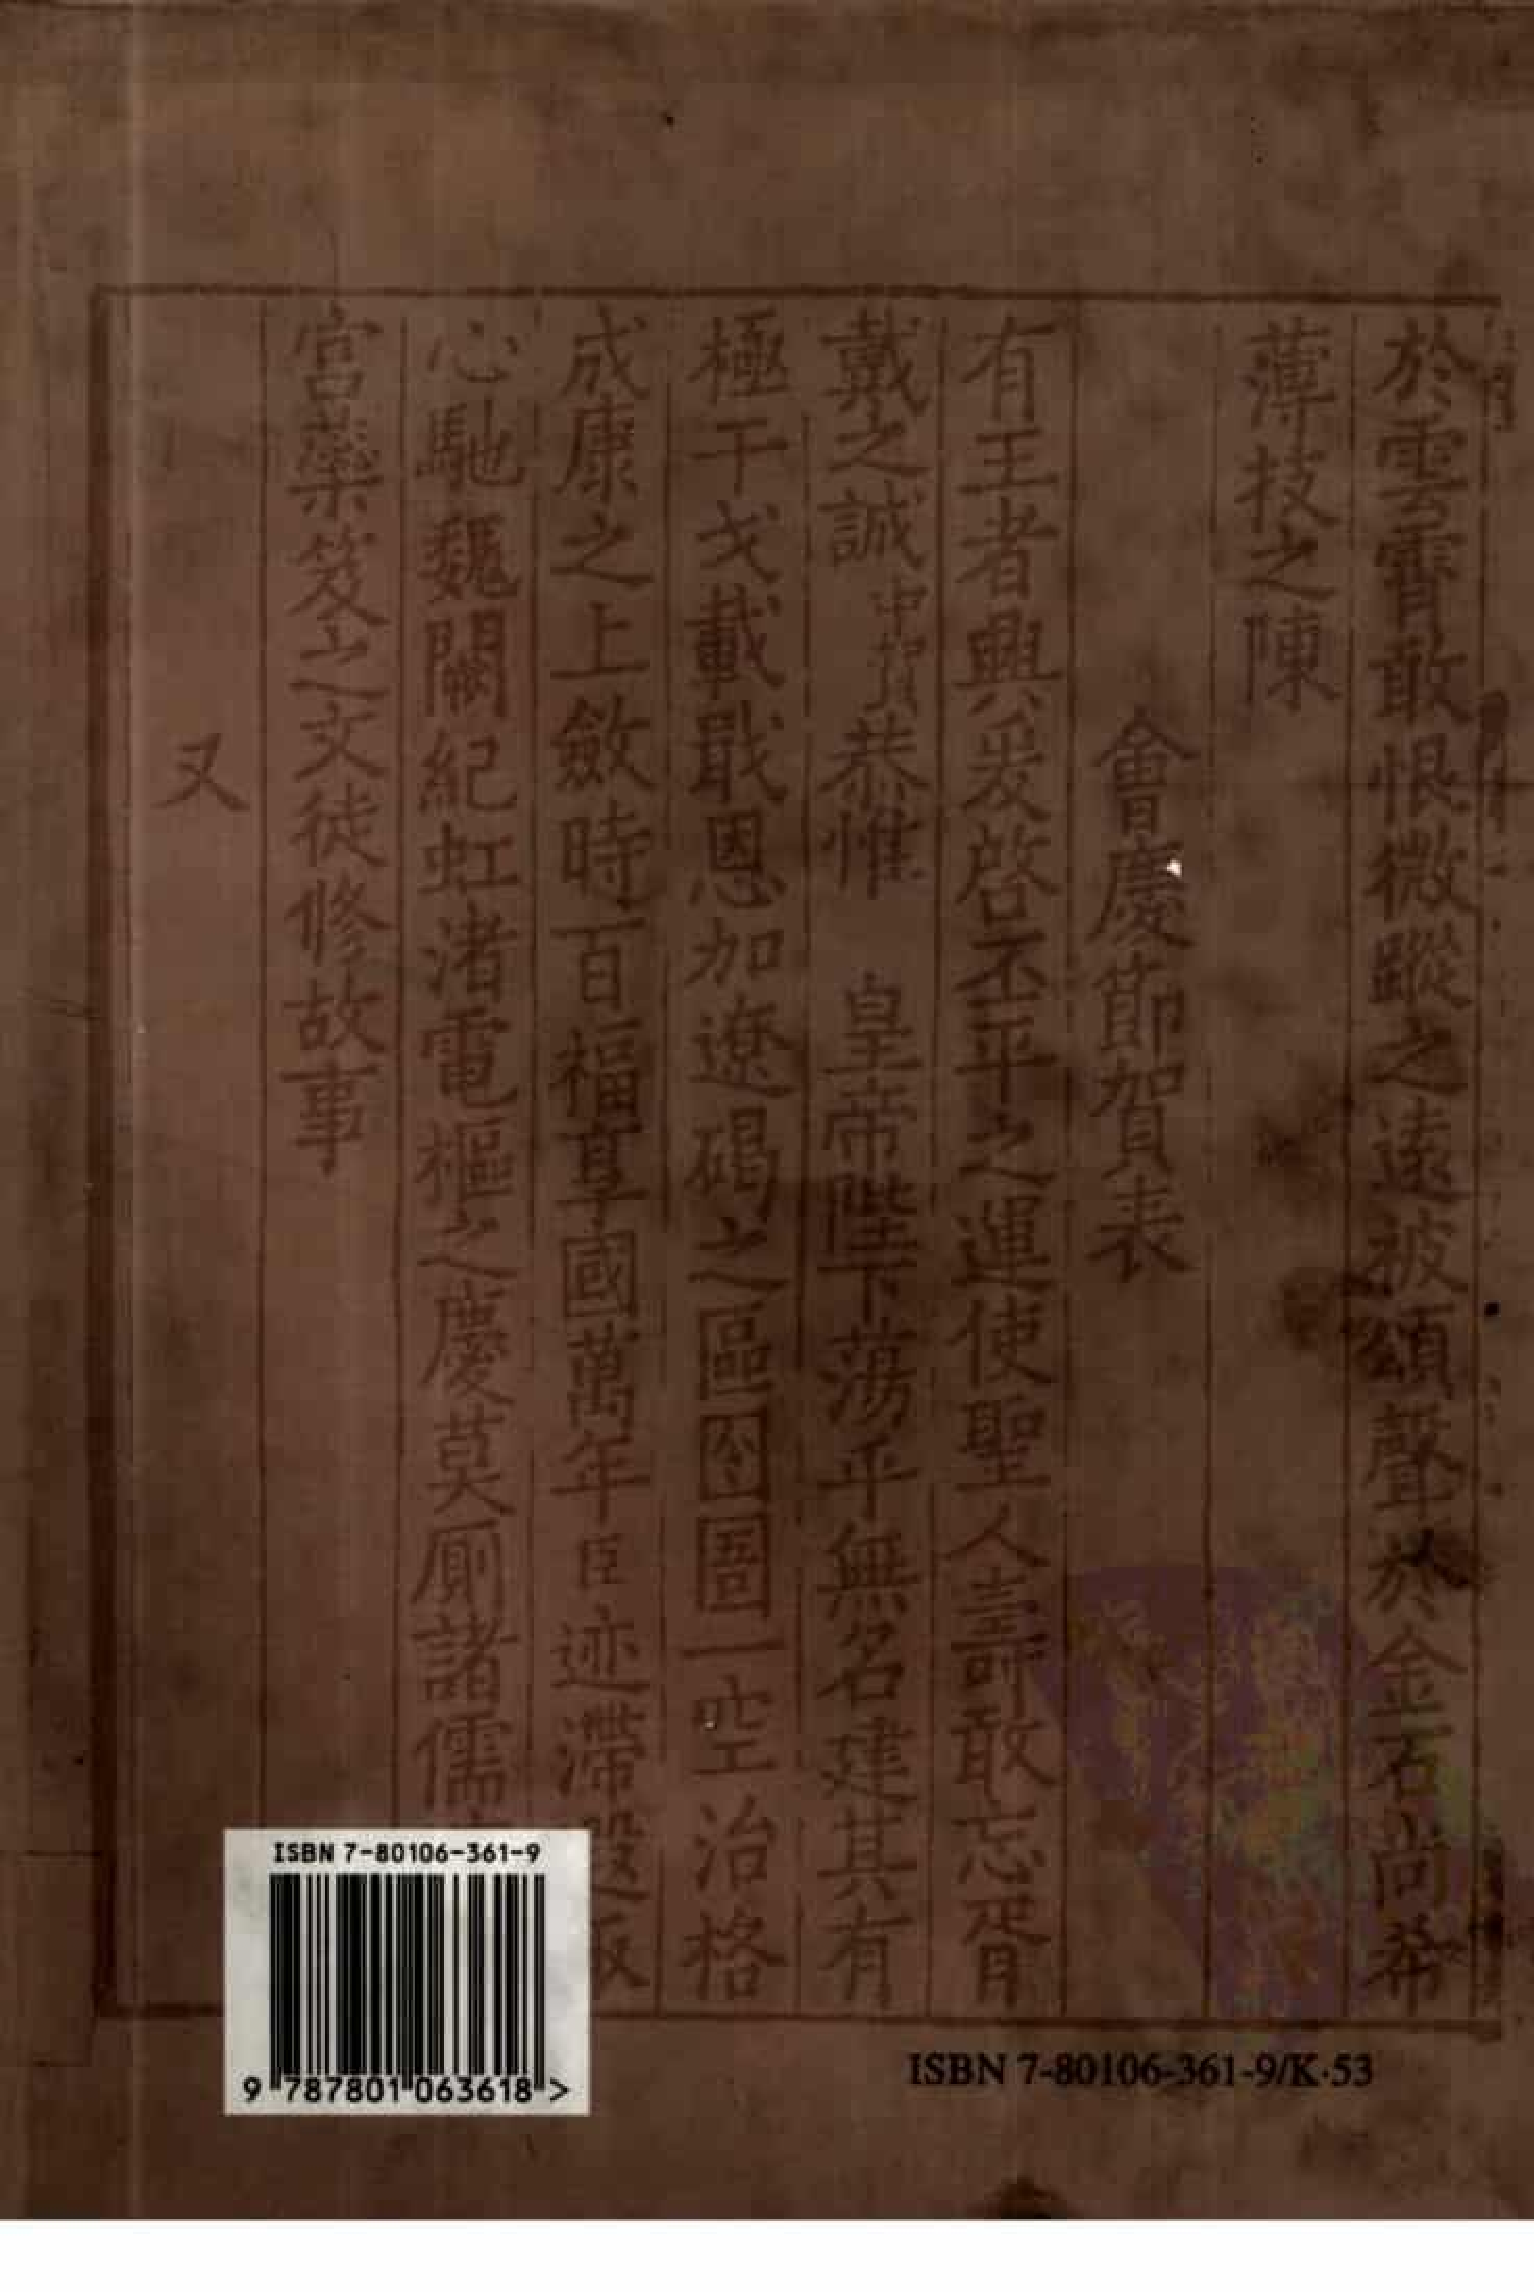 於雲霄敢恨微蹤之遠被頌聲於金石尚希
薄技之陳
會慶節賀表
有王者興爰啓丕平之運使聖人壽敢忘胥
戴之誠中賀恭惟 皇帝陛下蕩乎無名建其有
極干戈載戢恩加遼碣之區囹圄一空治格
成康之上斂時百福享國萬年臣迹滯
心馳魏闕紀虹渚電樞之慶莫厠諸儒
宮藥笈之文徒修故事
又
ISBN 7-80106-361-9
9 787801 063618 >
ISBN 7-80106-361-9/K·53